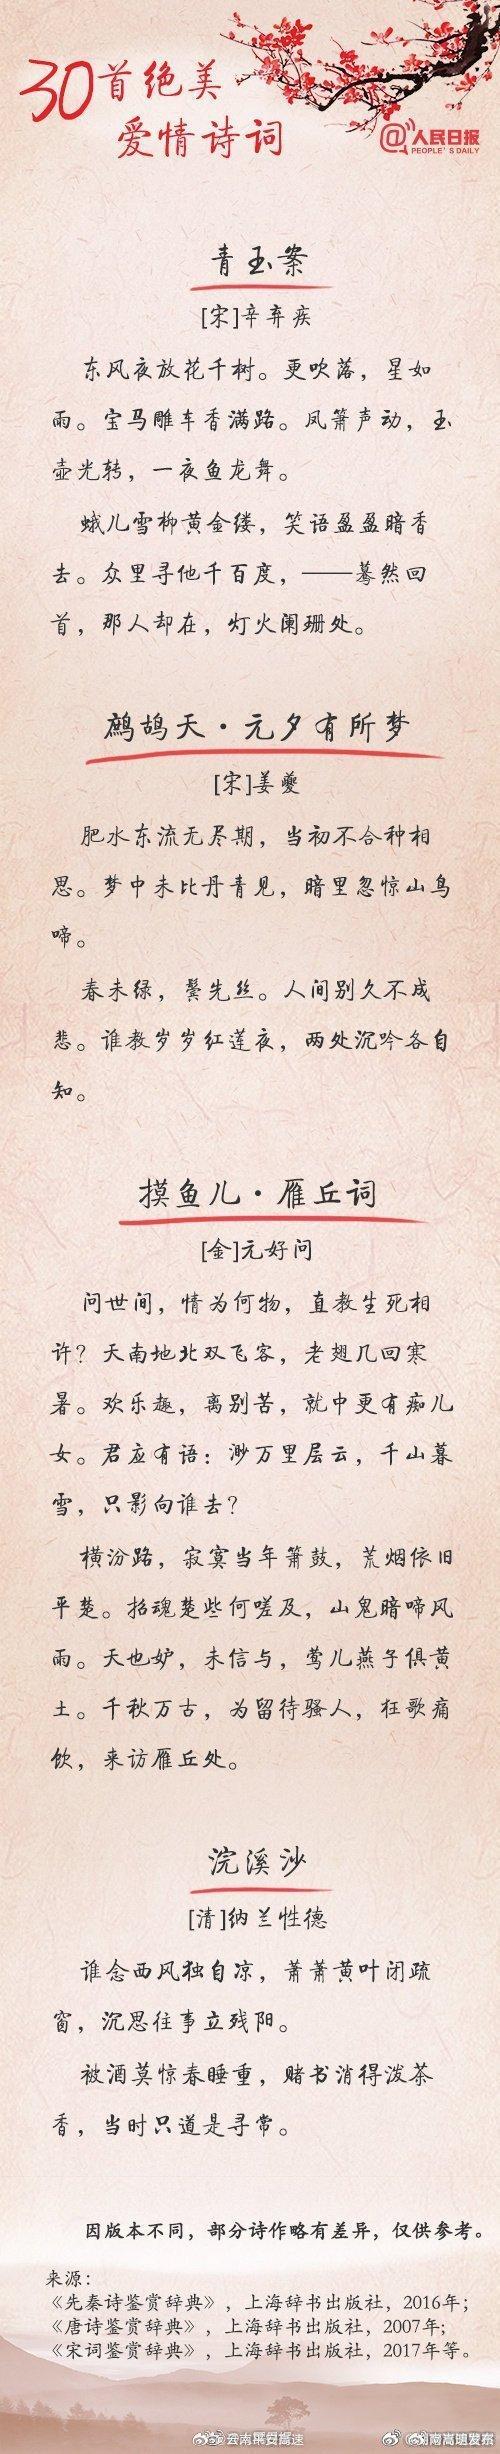 30首绝美
爱情诗词
@人民日报
PEOPLE'S DAILY
青玉案
[宋]辛弃疾
东风夜放花千树。更吹落，星如
雨。宝马雕车香满路。凤箫声动，玉
壶光转，一夜鱼龙舞。
蛾儿雪柳黄金缕，笑语盈盈暗香
去。众里寻他千百度，——蓦然回
首，那人却在，灯火阑珊处。
鹧鸪天·元夕有所梦
[宋]姜夔
肥水东流无尽期，当初不合种相
思。梦中未比丹青见，暗里忽惊山鸟
啼。
春未绿，鬓先丝。人间别久不成
悲。谁教岁岁红莲夜，两处沉吟各自
知。
摸鱼儿·雁丘词
[金]元好问
问世间，情为何物，直教生死相
许？天南地北双飞客，老翅几回寒
暑。欢乐趣，离别苦，就中更有痴儿
女。君应有语：渺万里层云，千山暮
雪，只影向谁去？
横汾路，寂寞当年箫鼓，荒烟依旧
平楚。招魂楚些何嗟及，山鬼暗啼风
雨。天也妒，未信与，莺儿燕子俱黄
土。千秋万古，为留待骚人，狂歌痛
饮，来访雁丘处。
浣溪沙
[清]纳兰性德
谁念西风独自凉，萧萧黄叶闭疏
窗，沉思往事立残阳。
被酒莫惊春睡重，赌书消得泼茶
香，当时只道是寻常。
因版本不同，部分诗作略有差异，仅供参考。
来源：
《先秦诗鉴赏辞典》，上海辞书出版社，2016年；
《唐诗鉴赏辞典》，上海辞书出版社，2007年；
《宋词鉴赏辞典》，上海辞书出版社，2017年等。
@云南平安高速
@湖南嵩明发布